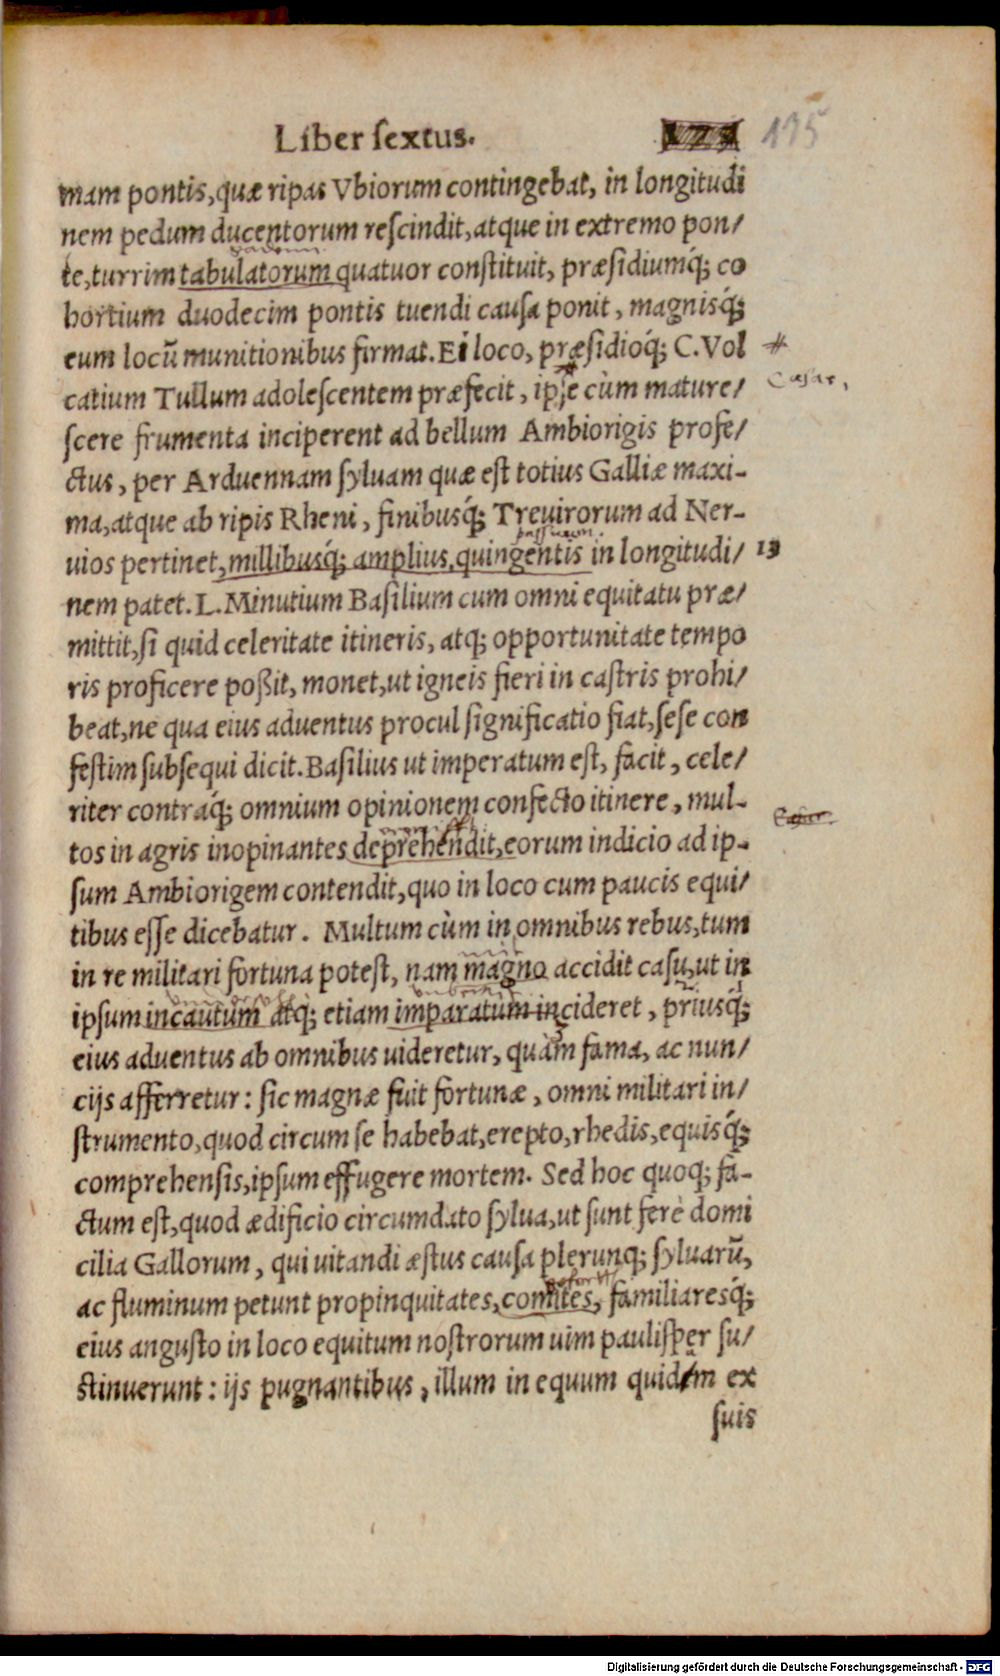 Liber sextus. 175
mam pontis, quæ ripas Vbiorum contingebat, in longitudi
nem pedum ducentorum rescindit, atque in extremo pon/
te, turrim tabulatorum quatuor constituit, præsidiumq́; co
hortium duodecim pontis tuendi causa ponit, magnisq́;
eum locũ munitionibus firmat. Ei loco, præsidioq́; C. Vol
Cæsar,
catium Tullum adolescentem præfecit, ipse cùm mature/
scere frumenta inciperent ad bellum Ambiorigis profe/
ctus, per Arduennam sylvam quæ est totius Galliæ maxi-
ma, atque ab ripis Rheni, finibusq́; Treuirorum ad Ner-
passuum.
uios pertinet, millibusq́; amplius, quingentis in longitudi/ 13
nem patet. L. Minutium Basilium cum omni equitatu præ/
mittit, si quid celeritate itineris, atq; opportunitate tempo
ris proficere poßit, monet, ut igneis fieri in castris prohi/
beat, ne qua eius aduentus procul significatio fiat, sese con
festim subsequi dicit. Basilius ut imperatum est, facit, cele/
riter contraq́; omnium opinionem confecto itinere, mul-
tos in agris inopinantes deprehendit, eorum indicio ad ip-
sum Ambiorigem contendit, quo in loco cum paucis equi/
tibus esse dicebatur. Multum cùm in omnibus rebus, tum
in re militari fortuna potest, nam magno accidit casu, ut in
ipsum incautum atq; etiam imparatum incideret, priusq́;
eius aduentus ab omnibus uideretur, quàm fama, ac nun/
cijs afferretur: sic magnæ fuit fortunæ, omni militari in/
strumento, quod circum se habebat, erepto, rhedis, equisq́;
comprehensis, ipsum effugere mortem. Sed hoc quoq; fa-
ctum est, quod ædificio circumdato sylua, ut sunt ferè domi
cilia Gallorum, qui uitandi æstus causa plerunq; syluarũ,
ac fluminum petunt propinquitates, comites, familiaresq́;
eius angusto in loco equitum nostrorum uim paulisper su/
stinuerunt: ijs pugnantibus, illum in equum quidam ex
suis
Digitalisierung gefördert durch die Deutsche Forschungsgemeinschaft - DFG